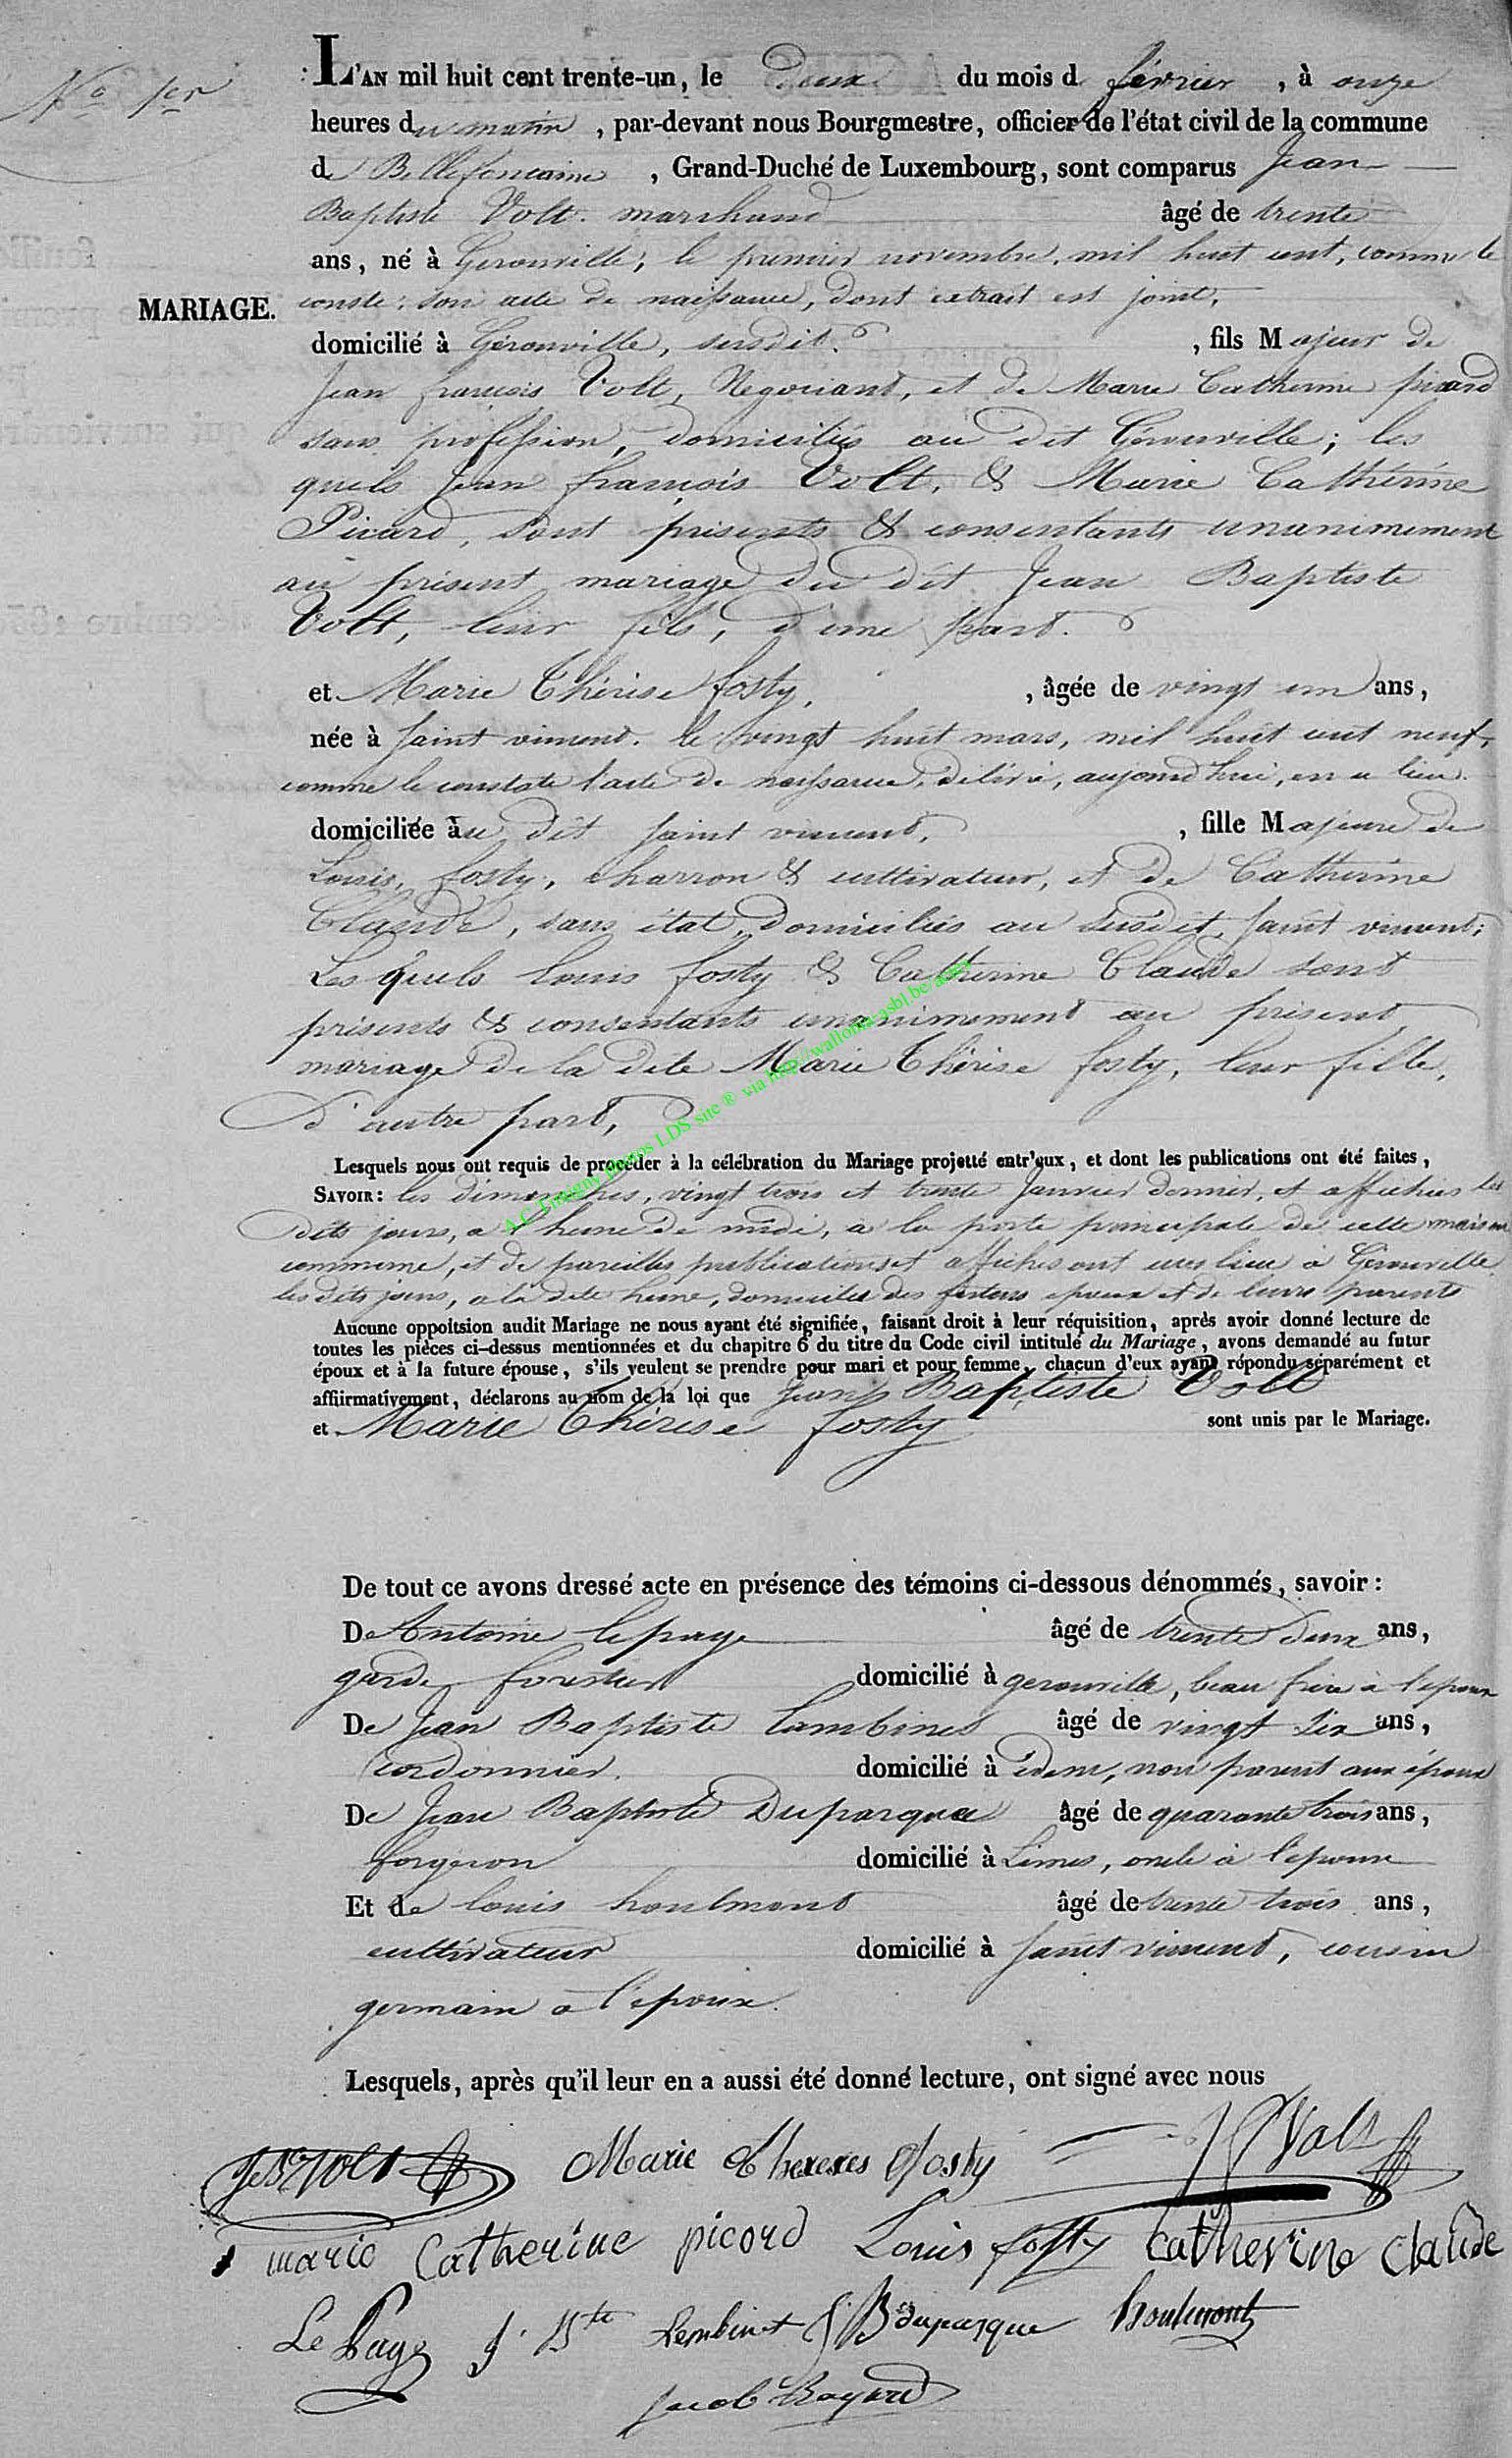 N.o 1er
L'AN mil huit cent trente-un, le deux du mois d février, à onze
heures du matin, par-devant nous Bourgmestre, officier de l'état civil de la commune
de Bellefontaine, Grand-Duché de Luxembourg, sont comparus Jean
Baptiste Volt. marchand âgé de trente
ans, né à Gerouville, le premier novembre, mil huit cent, comme le
MARIAGE.
conste son acte de naissance, dont extrait est joint,
domicilié à Gérouville, susdit. , fils Majeur de
Jean françois Volt, Négociant, et de Marie Catherine picard
sans profession, domiciliés au dit Gérouville; les
quels Jean françois Volt, & Marie Cathérine
Picard, sont présents & consentants unanimement
au présent mariage du dit Jean Baptiste
Volt, leur fils, d'une part.
et Marie Thérèse fosty, , âgée de vingt un ans,
née à Saint vincent. le vingt huit mars, mil huit cent neuf,
comme le constate l'acte de naissance, délivré, aujourd'hui, en ce lieu.
domiciliée au dit Saint vincent, , fille Majeure de
Louis, fosty, charron & cultivateur, et de Catherine
Claude, sans état, domiciliés au susdit, Saint vincent;
Les quels Louis fosty & Catherine Claude sont
présents & consentants unanimement au présent
mariage de la dite Marie Thérèse fosty, leur fille,
d'autre part,
Lesquels nous ont requis de procéder à la célébration du Mariage projetté entr'eux, et dont les publications ont été faites,
SAVOIR: les dimanches, vingt trois et trente Janvier dernier, et affichées les
dits jours, a l'heure de midi, a la porte principale de cette maison
commune, et de pareilles publications et affiches ont eues lieu à Gérouville
les dits jours, a la dite heure, domicile des futurs epoux et de leurs parents
Aucune oppoitsion audit Mariage ne nous ayant été signifiée, faisant droit à leur réquisition, après avoir donné lecture de
toutes les pièces ci-dessus mentionnées et du chapitre 6 du titre du Code civil intitulé du Mariage, avons demandé au futur
époux et à la future épouse, s'ils veulent se prendre pour mari et pour femme, chacun d'eux ayant répondu séparément et
affirmativement, déclarons au nom de la loi que Jean Baptiste Volt
et Marie Thérèse fosty sont unis par le Mariage.
De tout ce avons dressé acte en présence des témoins ci-dessous dénommés, savoir:
De Antoine lepage âgé de trente deux ans,
garde forestier domicilié à gerouville, beau frère à l'epoux
De Jean Baptiste Lambinet âgé de vingt six ans,
Cordonnier. domicilié à idem, non parent aux époux
De Jean Baptiste Duparque âgé de quarante trois ans,
forgeron domicilié à Limes, oncle à l'epoux
Et de louis houlmont âgé de trente trois ans,
cultivateur domicilié à Saint vincent, cousin
germain à l'epoux.
Lesquels, après qu'il leur en a aussi été donné lecture, ont signé avec nous
Marie Thereses fosty Volt
marie Catherine picard Louis fosty Catherine Claude
Le Page J. Bte Lembinet J B duparque houlmont
Jacob
A.C. Tintigny photos LDS site ® via http://wallonia-asbl.be/